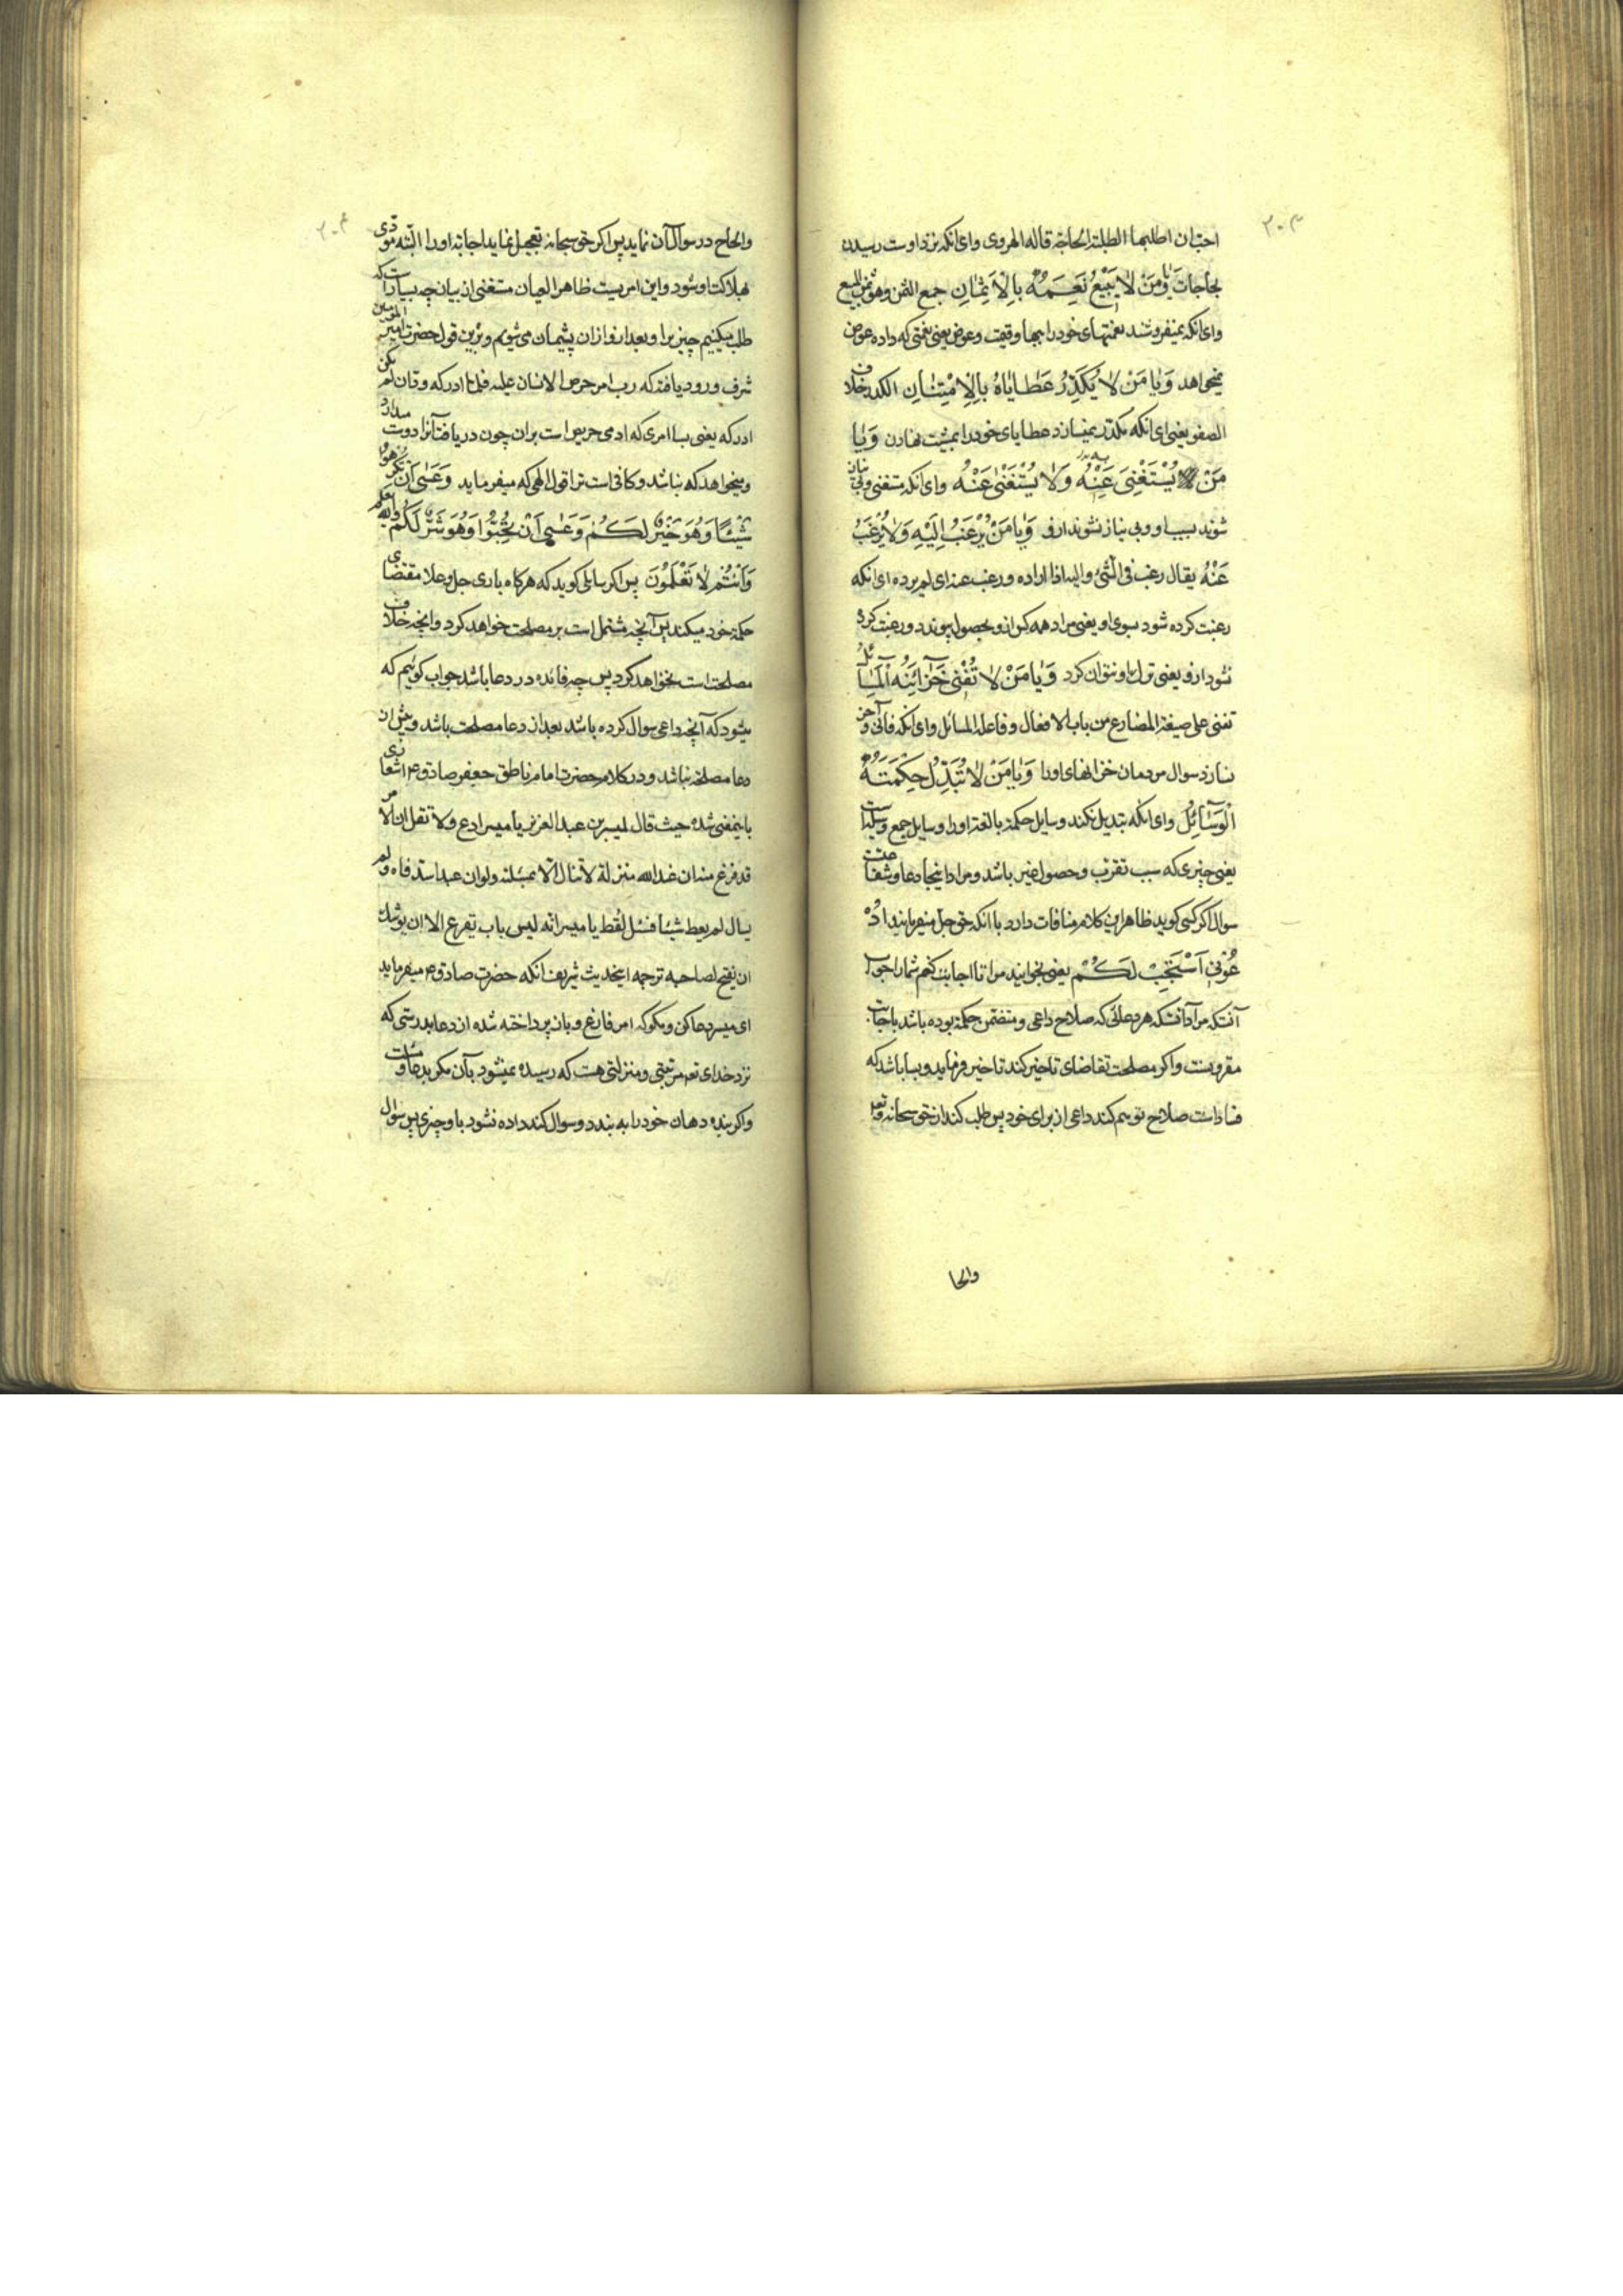 ۳۰۳
احب ان اطلبها الطلبة الحاجة قاله الهروی وای انکه نزد اوست رسیدن
بحاجات وَيا مَنْ لا يَبيعُ نِعَمَهُ بِالْاَثْمانِ جمع الثمن وهو ثمن المبیع
وای انکه نمیفروشد نعمتهای خود را ببها وقیمت وعوض یعنی نعمتی که داده عوض
نمیخواهد وَيا مَنْ لا يُكَدِّرُ عَطاياهُ بِالْاِمْتِنانِ الکدر خلاف
الصفو یعنی ای انکه مکدر نمیسازد عطایای خود را بمنت نهادن وَيا
مَنْ يُسْتَغْنى بِهِ وَلا يُسْتَغْنى عَنْهُ وای انکه مستغنی وبی نیاز
شوند بسبب او وبی نیاز نشوند ازو وَيا مَنْ يُرْغَبُ اِلَيْهِ وَلا يُرْغَبُ
عَنْهُ یقال رغب فی الشئ والیه اذا اراده ورغب عنه ای لم یرده ای انکه
رغبت کرده شود بسوی او یعنی مراد همه کس ازو بحصول پیوندد ورغبت کرده
نشود ازو یعنی ترک او نتوان کرد وَيا مَنْ لا تُفْنى خَزآئِنَهُ الْمَسآئِلُ
تفنی علی صیغة المضارع من باب الافعال وفاعله المسائل وای انکه فانی و آخر
نسازد سوال مردمان خزانهای اورا وَيا مَنْ لا تُبَدِّلُ حِكْمَتَهُ
الْوَسآئِلُ وای انکه تبدیل نکند وسایل حکمة بالغه اورا وسایل جمع وسیلتست
یعنی چیزی که سبب تقرب وحصول غیر باشد ومراد اینجا دعا وشفاعتست
سوال اکر کسی کوید ظاهر این کلام منافات دارد با انکه حق جل میفرماید اُدْ
عُوني اَسْتَجِبْ لَكُمْ یعنی بخوانید مرا تا اجابت کنم شما را جواب
آنستکه مراد انستکه هر دعائی که صلاح داعی ومتضمن حکمة بوده باشد باجابت
مقرونست واکر مصلحت تقاضای تاخیر کند تاخیر فرماید وبسا باشد که
فساد است صلاح توهم کند داعی از برای خود پس طلب کند از حق سبحانه وتعالی
والحا
۳۰۴
والحاح در سوال آن نماید پس اکر حق سبحانه تعجیل نماید اجابة اورا البته مودی
بهلاکت او شود واین امریست ظاهر العیان مستغنی از بیان چه بسیار است که
طلب میکنیم چیزیرا وبعد از ان پشیمان می شویم وبر این قول حضرت امیر المؤمنین
شرف ورود یافته که رب امر حرص الانسان علیه فلما ادرکه ود ان لم یکن
ادرکه یعنی بسا امری که ادمی حریص است بران چون دریافت آنرا دوست میدارد
ومیخواهد که نباشد وکافی است ترا قول الهی که میفرماید وَعَسى اَنْ تَكْرَهُوا
شَيْئًا وَهُوَ خَيْرٌ لَكُمْ وَعَسى اَنْ تُحِبُّوا وَهُوَ شَرٌّ لَكُمْ وَاللهُ يَعْلَمُ
وَاَنْتُمْ لا تَعْلَمُونَ پس اکر سایلی کوید که هرکاه باری جل وعلا مقتضای
حکمة خود میکند پس آنچه مشتمل است بر مصلحت خواهد کرد وانچه خلاف
مصلحت است نخواهد کرد پس چه فائده در دعا باشد جواب کوئیم که
میشود که آنچه داعی سوال کرده باشد بعد از دعا مصلحت باشد وپیش از ان
دعا مصلحة نباشد ودر کلام حضرت امام ناطق جعفر صادق ع م اشعاری
باینمعنی شده حیث قال لمیسر بن عبد العزیز یا میسر ادع ولا تقل ان الامر
قد فرغ منه ان عند الله منزلة لا تنال الا بمسئلة ولو ان عبدا سد فاه ولم
یسال لم یعط شیئا فسئل تعط یا میسر انه لیس باب یقرع الا ان یوشک
ان یفتح لصاحبه ترجمه اینحدیث شریف انکه حضرت صادق ع م میفرماید
ای میسر دعا کن ومکو که امر فارغ وبان پرداخته شده از دعا بدرستی که
نزد خدای تعم مرتبتی ومنزلتی هست که رسیده نمیشود بآن مکر بدعا ومسئلت
واکر بنده دهان خود را به بندد وسوال نکند داده نشود باو چیزی پس سوال